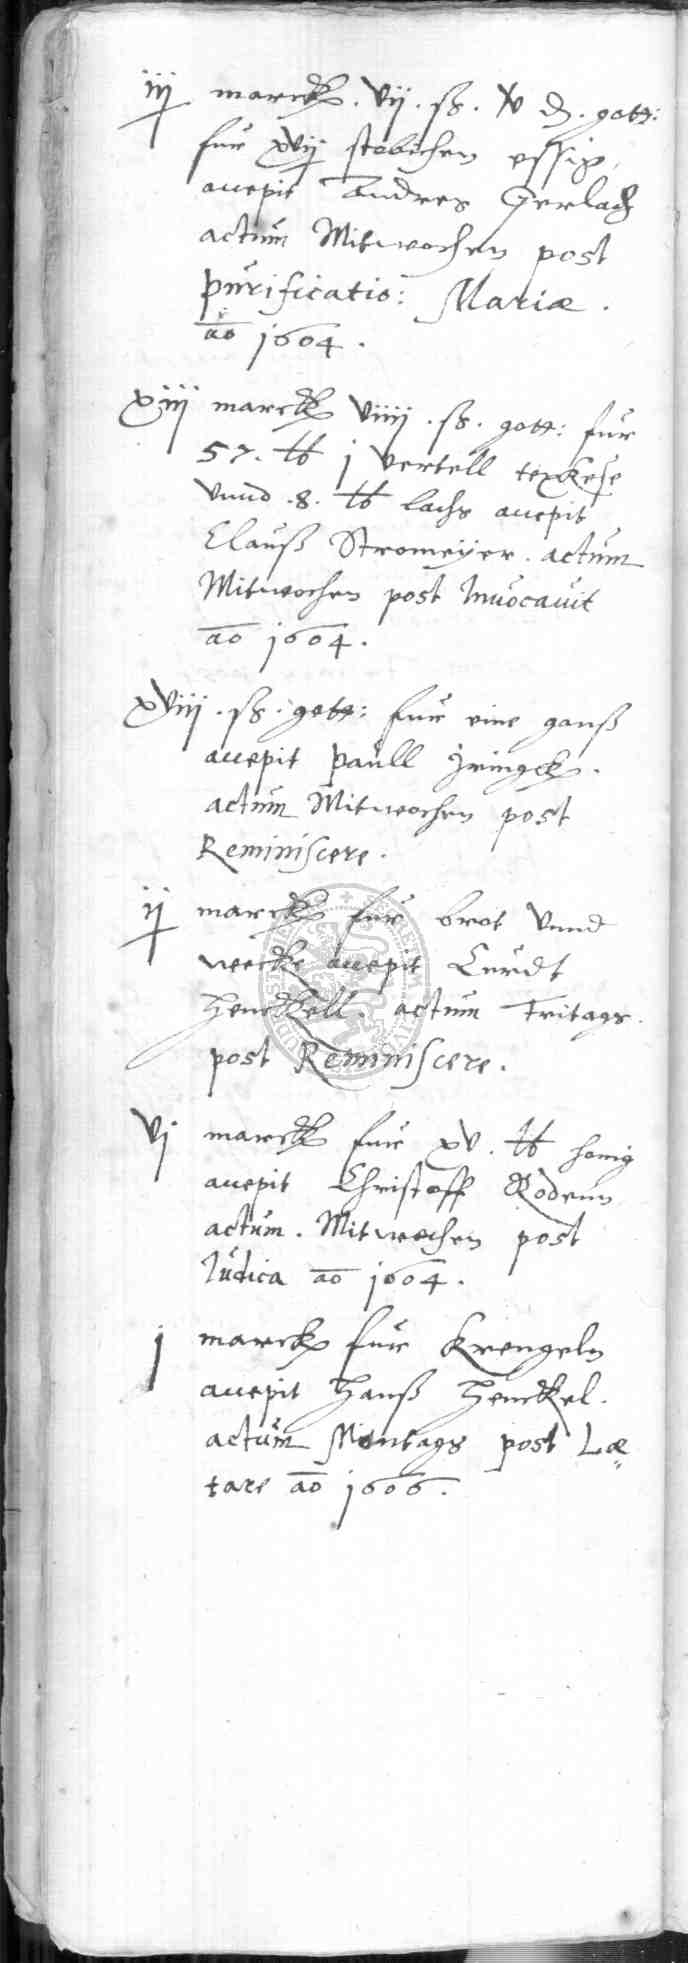 iij marck. vij. ß. v ₰. gott:
fur xvij stobichen essig,
accepit Andres Gerlach
actum Mitwochen post
purificatio: Mariæ.
ao 1604.
xiij marck viiij. ß. gott: fur
57. lb j vertell texkese
vnnd .8. lb lachs accepit
Clauß Stromeyer. actum
Mitwochen post Invocavit
ao 1604.
xviij. ß. gott: fur eine ganß
accepit Paull Iringck.
actum Mitwochen post
Reminiscere.
ij marck fur brot vnnd
wecke accepit Curdt
Henckell. actum Fritags
post Reminiscere.
vj marck fur xv. lb honig
accepit Christoff Rodeun
actum. Mitwochen post
Iudica ao 1604.
j marck fur Krengeln
accepit Hanß Henckel.
actum Montags post Læ„
tare ao 1606.